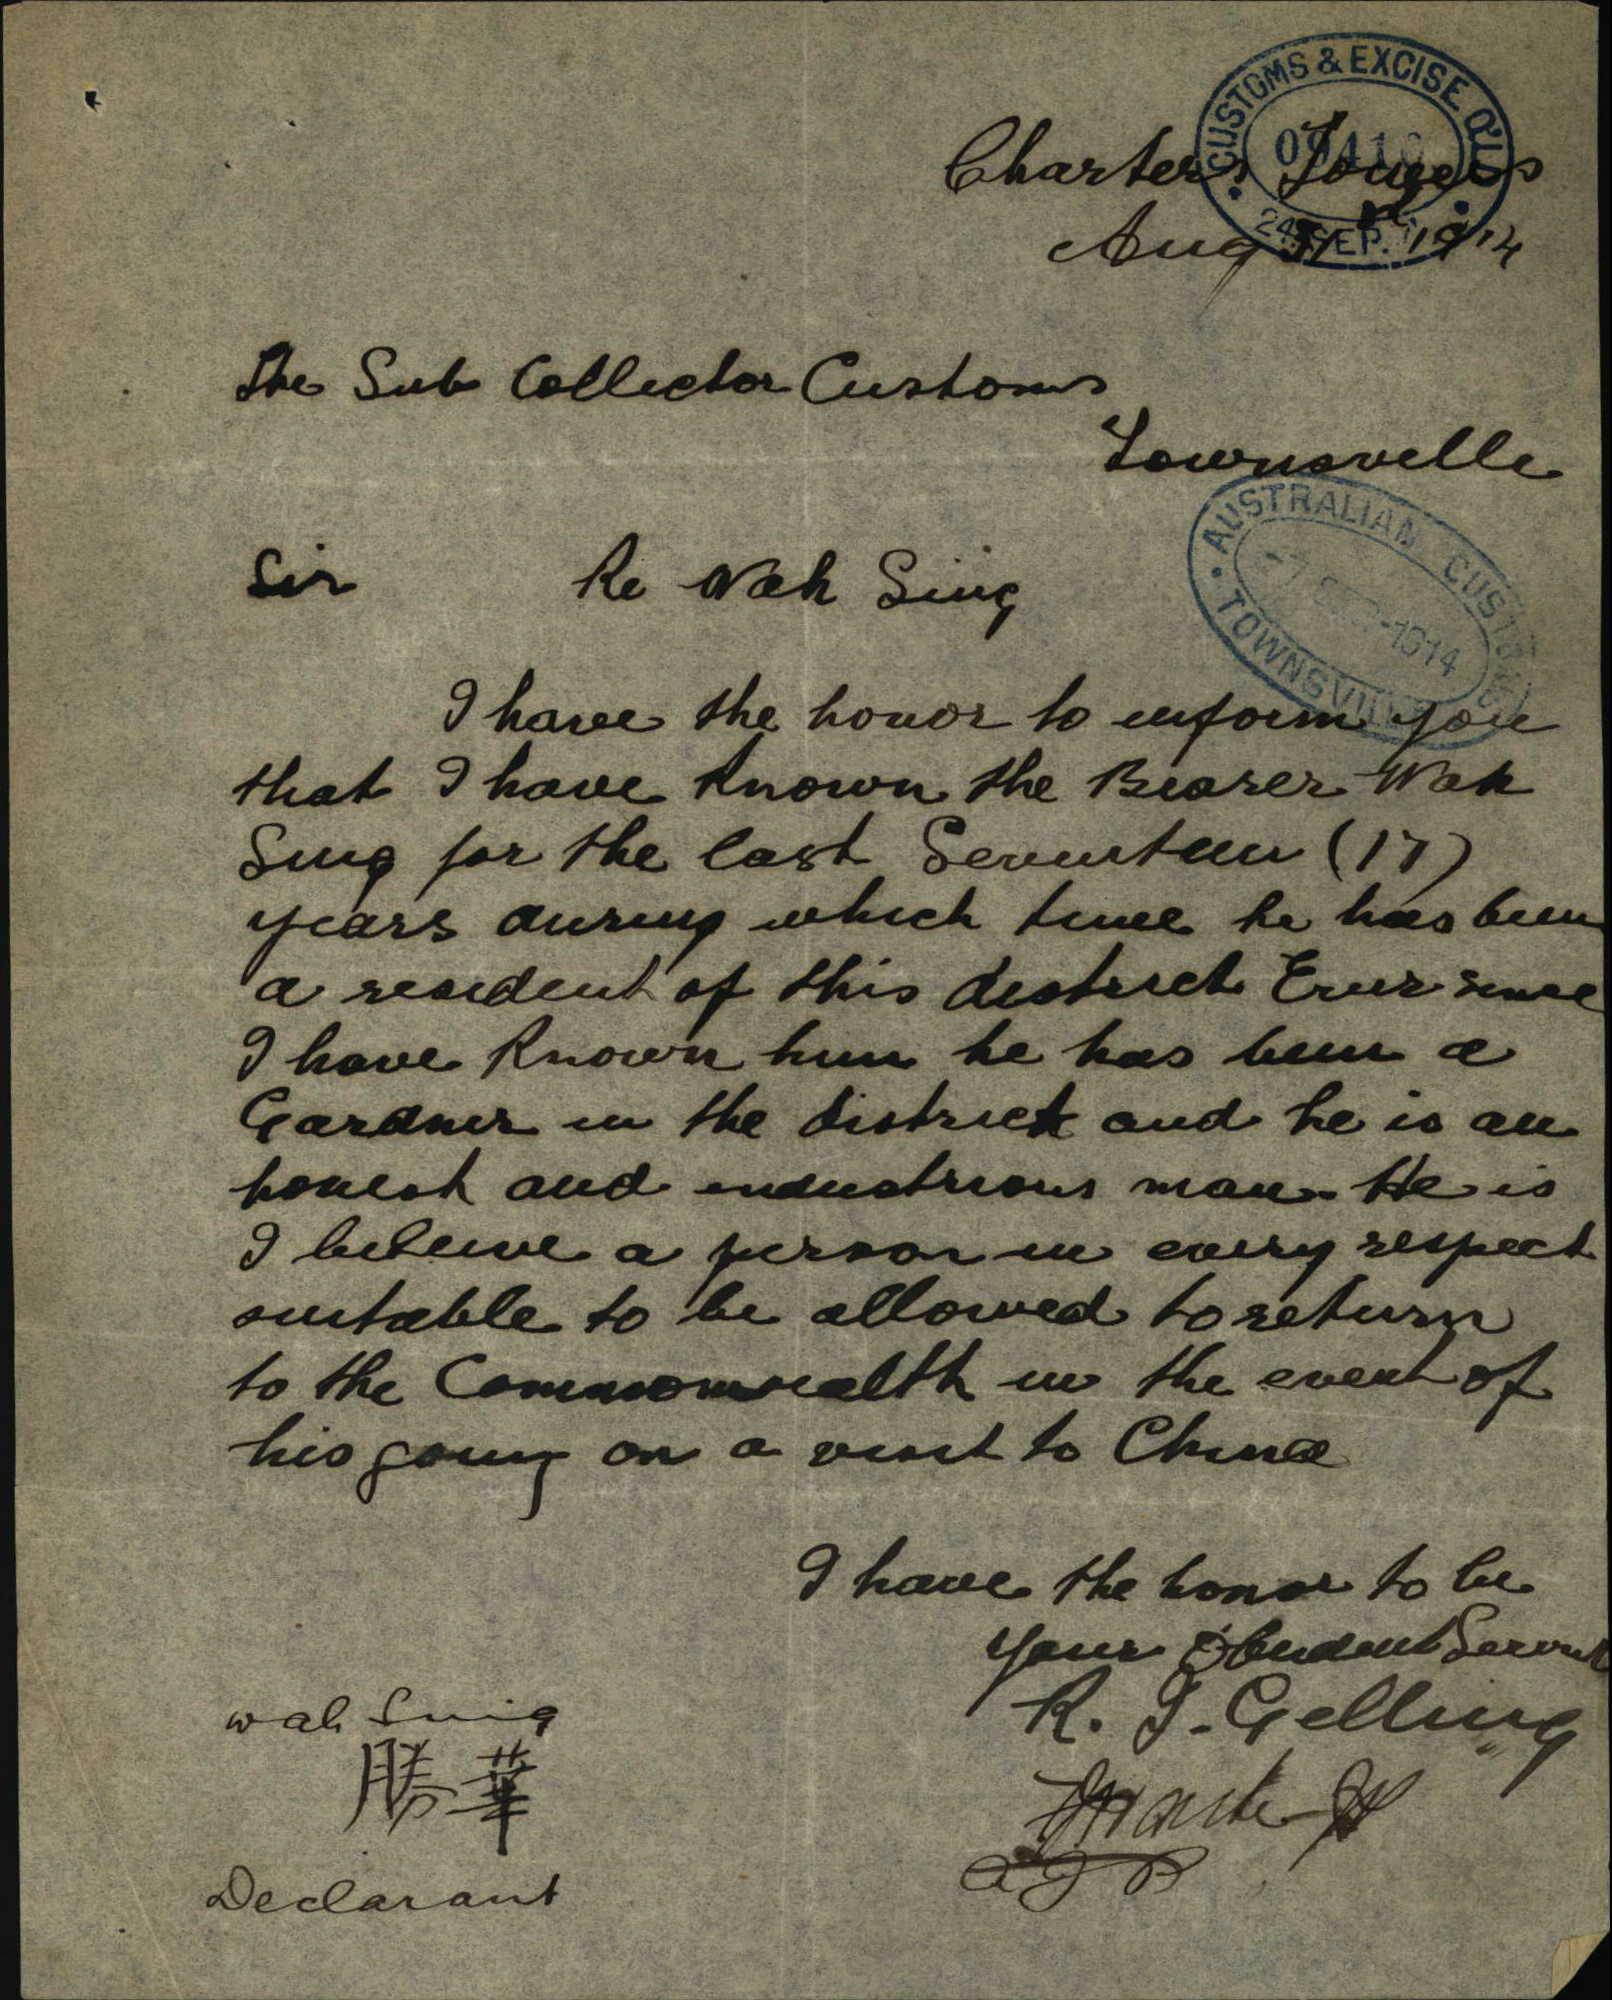 CUSTOMS & EXCISE Q'LD
24 SEP.
Charters Towers
Aug 31st 1914
The Sub Collector Customs
Townsville
AUSTRALIAN CUSTOMS
-7 SEP 1914
TOWNSVILLE
Sir Re Wah Sing
I have the honor to inform you
that I have Known the Bearer Wah
Sing for the last Seventeen (17)
years during which time he has been
a resident of this district Ever since
I have Known him he has been a
Gardner in the district and he is an
honest and industrious man. He is
I beleive a person in every respect
suitable to be allowed to return
to the Commonwealth in the event of
his going on a visit to China
I have the honor to be
your Obedient Servant
R. J. Gelling
wah Sing
勝華
Declarant